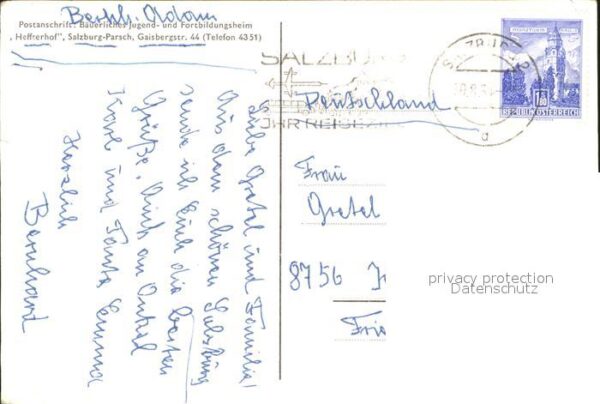 Bernh. Adam
Postanschrift: Bäuerliches Jugend- und Fortbildungsheim
„Heffterhof", Salzburg-Parsch, Gaisbergstr. 44 (Telefon 4351)
Liebe Gretel und Familie!
Aus dem schönen Salzburg
sende ich Euch die besten
Grüße. Auch an Onkel
Karl und Tante Emma
Herzlich
Bernhard
SALZBURG
IHR REISEZIEL
REPUBLIK ÖSTERREICH
Deutschland
Frau
Gretel
8756
privacy protection
Datenschutz